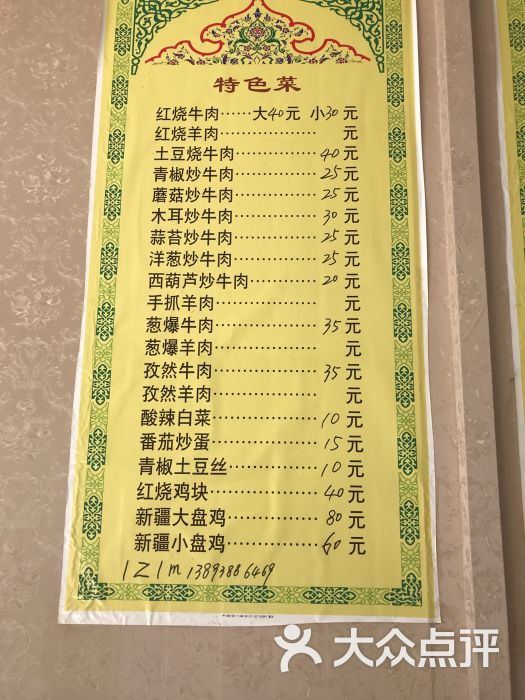 特色菜
红烧牛肉……大40元 小30元
红烧羊肉………………元
土豆烧牛肉…………40元
青椒炒牛肉…………25元
蘑菇炒牛肉…………25元
木耳炒牛肉…………30元
蒜苔炒牛肉…………25元
洋葱炒牛肉…………25元
西葫芦炒牛肉………20元
手抓羊肉………………元
葱爆牛肉……………35元
葱爆羊肉………………元
孜然牛肉……………35元
孜然羊肉………………元
酸辣白菜……………10元
番茄炒蛋……………15元
青椒土豆丝…………10元
红烧鸡块……………40元
新疆大盘鸡…………80元
新疆小盘鸡…………60元
1Z1m 13893886469
大众点评